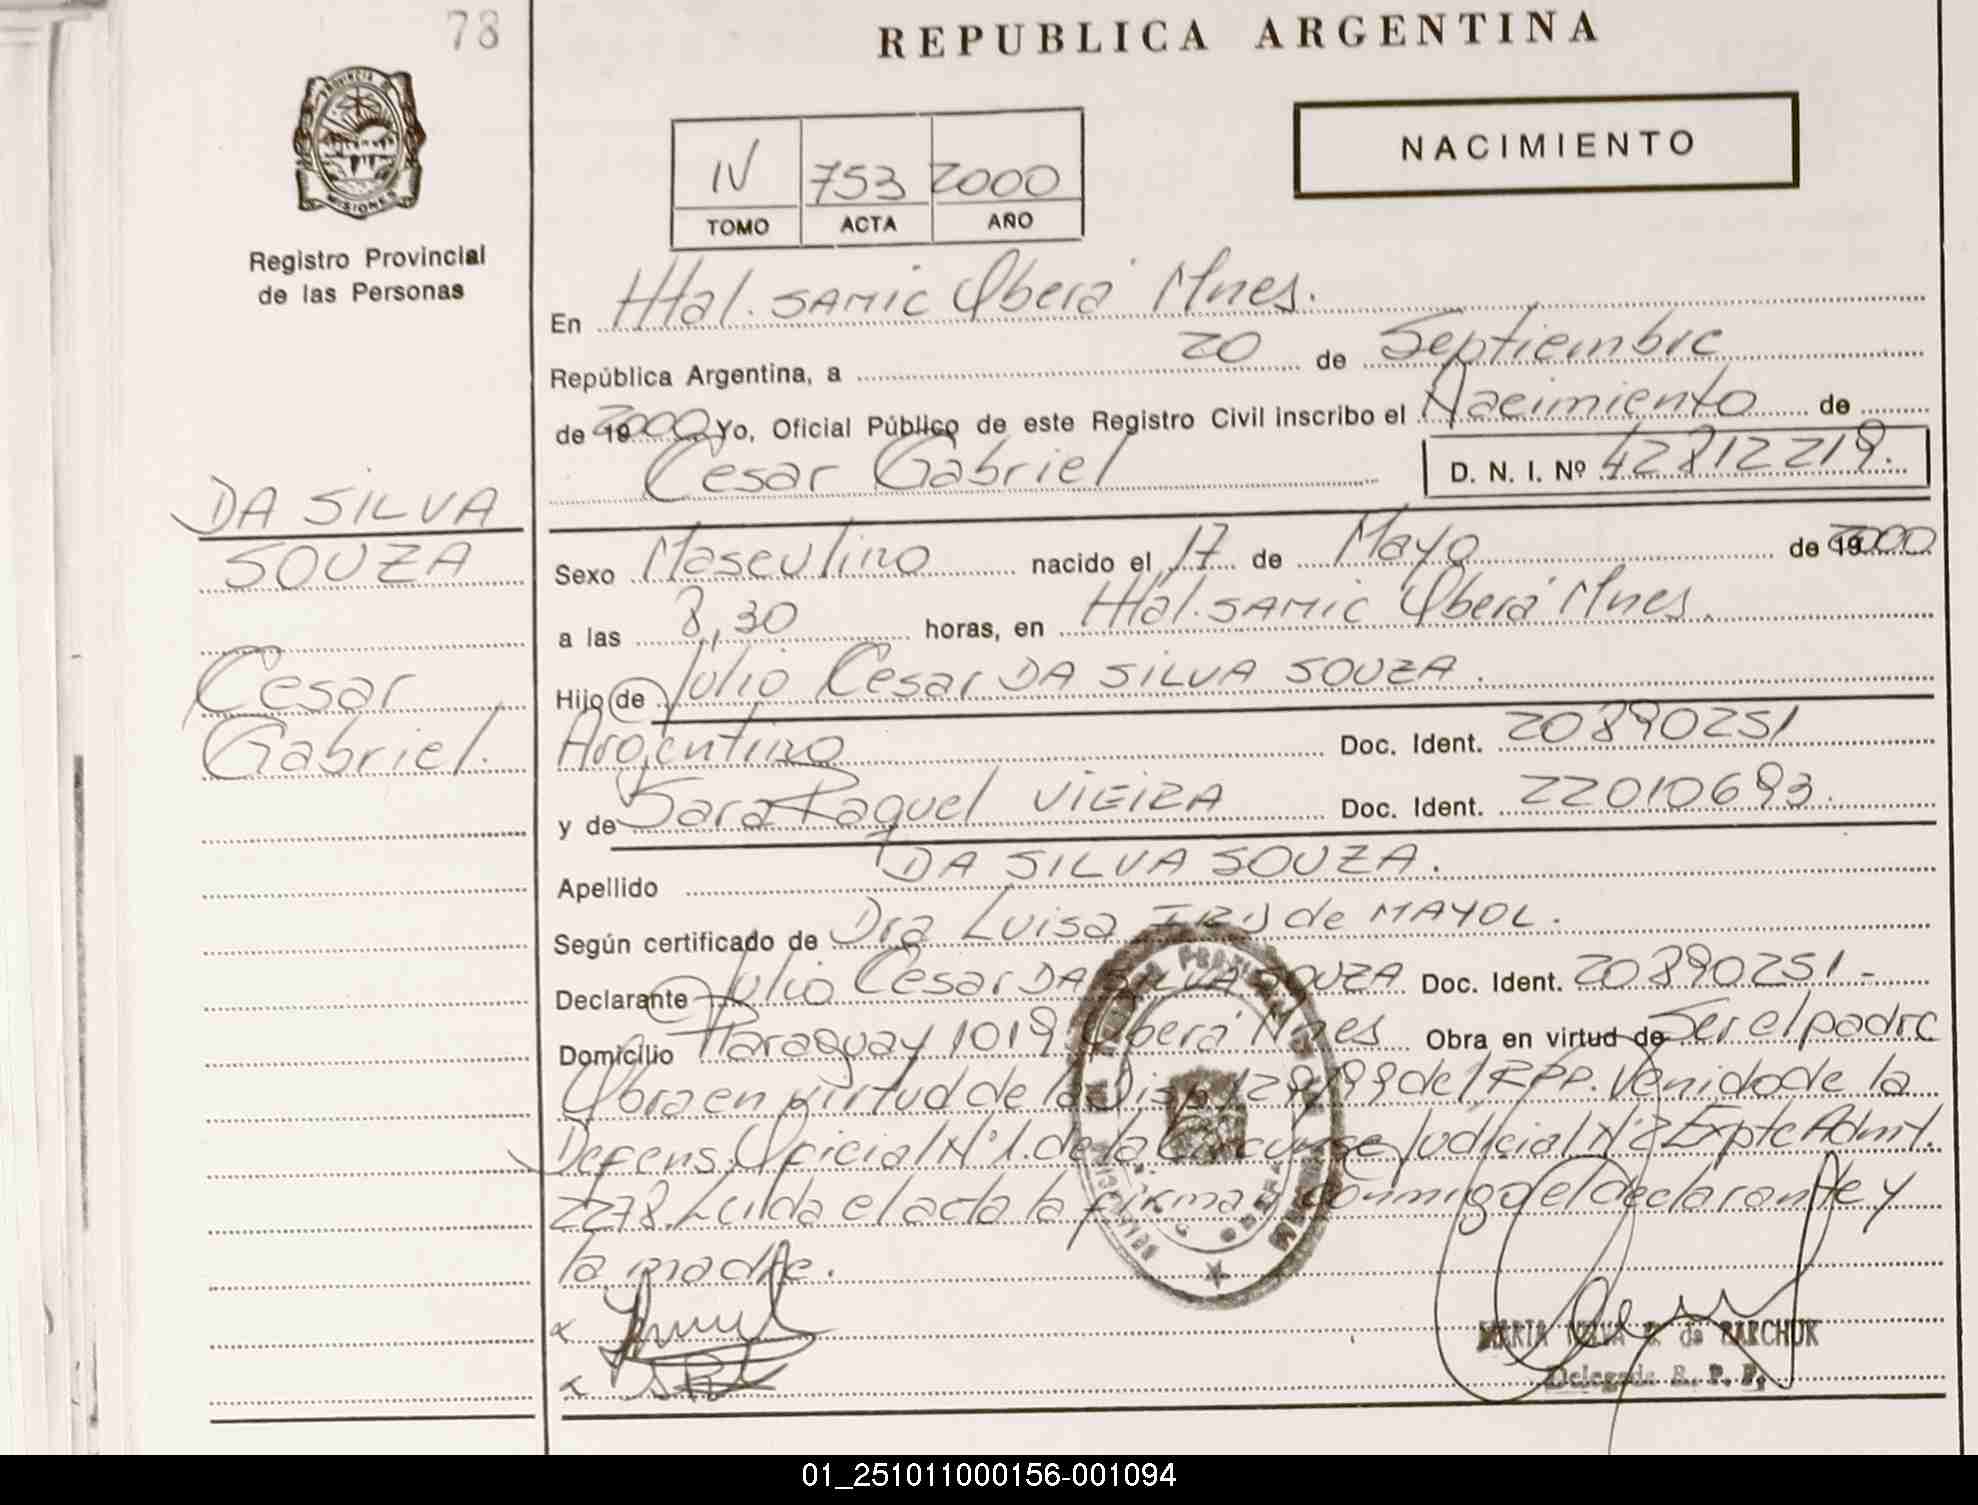 78
REPUBLICA ARGENTINA
PROVINCIA DE
MISIONES
NACIMIENTO
IV 753 2000
TOMO ACTA AÑO
Registro Provincial
de las Personas
En Htal. SAMIC Oberá Mnes.
República Argentina, a 20 de Septiembre
de 19 2000 Yo, Oficial Público de este Registro Civil inscribo el Nacimiento de
Cesar Gabriel D. N. I. Nº 42812219.
DA SILVA
SOUZA
Cesar
Gabriel.
Sexo Masculino nacido el 17 de Mayo de 19 2000
a las 8,30 horas, en Htal. SAMIC Oberá Mnes.
Hijo de Julio Cesar DA SILVA SOUZA.
Argentino Doc. Ident. 20890251
y de Sara Raquel VIEIRA Doc. Ident. 22010693.
Apellido DA SILVA SOUZA.
Según certificado de Dra Luisa de MAYOL.
Declarante Julio Cesar DA SILVA SOUZA Doc. Ident. 20890251.-
Domicilio Paraguay 1019 Oberá Mnes Obra en virtud de Ser el padre
Obra en virtud de la Disp. 129/99 del RPP. Venido de la
Defens. Oficial Nº 1. de la Circunsc Judicial Nº 2 Expte Admt.
2278. Leída el acta la firma conmigo el declarante y
la madre.
MARIA de BARCHUK
Delegada R. P. P.
01_251011000156-001094